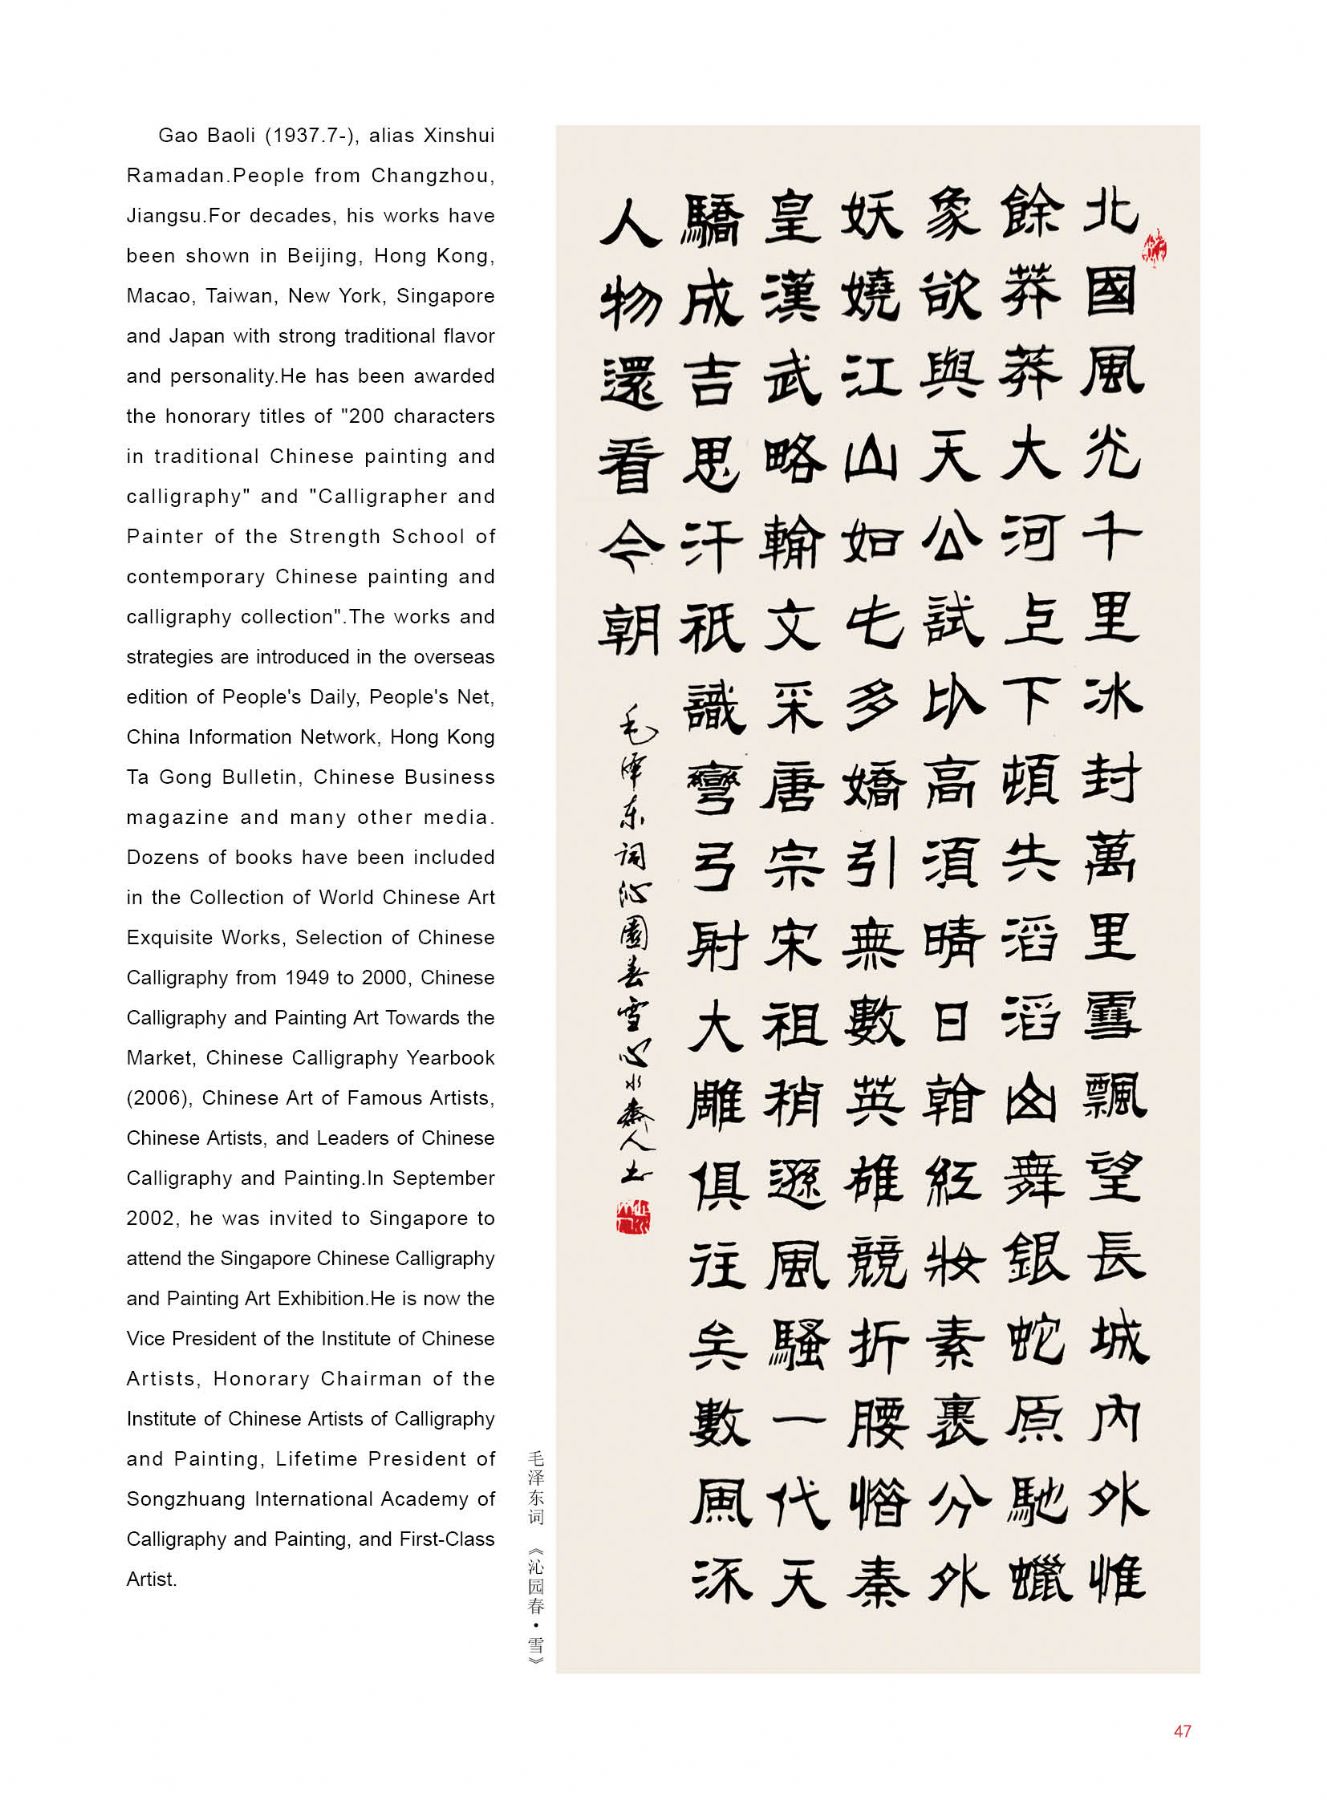 Gao Baoli (1937.7-), alias Xinshui
Ramadan.People from Changzhou,
Jiangsu.For decades, his works have
been shown in Beijing, Hong Kong,
Macao, Taiwan, New York, Singapore
and Japan with strong traditional flavor
and personality.He has been awarded
the honorary titles of "200 characters
in traditional Chinese painting and
calligraphy" and "Calligrapher and
Painter of the Strength School of
contemporary Chinese painting and
calligraphy collection".The works and
strategies are introduced in the overseas
edition of People's Daily, People's Net,
China Information Network, Hong Kong
Ta Gong Bulletin, Chinese Business
magazine and many other media.
Dozens of books have been included
in the Collection of World Chinese Art
Exquisite Works, Selection of Chinese
Calligraphy from 1949 to 2000, Chinese
Calligraphy and Painting Art Towards the
Market, Chinese Calligraphy Yearbook
(2006), Chinese Art of Famous Artists,
Chinese Artists, and Leaders of Chinese
Calligraphy and Painting.In September
2002, he was invited to Singapore to
attend the Singapore Chinese Calligraphy
and Painting Art Exhibition.He is now the
Vice President of the Institute of Chinese
Artists, Honorary Chairman of the
Institute of Chinese Artists of Calligraphy
and Painting, Lifetime President of
Songzhuang International Academy of
Calligraphy and Painting, and First-Class
Artist.
毛泽东词 《沁园春·雪》
北國風光千里冰封萬里雪飄望長城內外惟
餘莽莽大河上下頓失滔滔山舞銀蛇原馳蠟
象欲與天公試比高須晴日看紅妝素裹分外
妖嬈江山如此多嬌引無數英雄競折腰惜秦
皇漢武略輸文采唐宗宋祖稍遜風騷一代天
驕成吉思汗祇識彎弓射大雕俱往矣數風流
人物還看今朝
毛澤东词沁園春雪心水齋人书
47